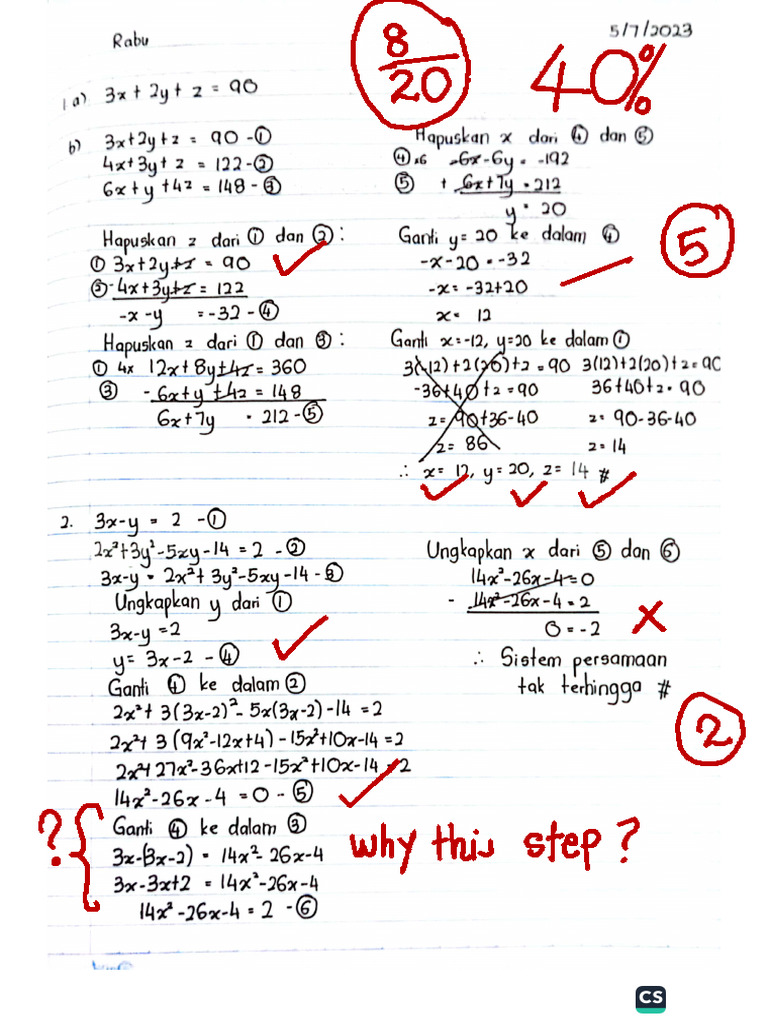 Rabu
8/20
40%
5/7/2023
1a) 3x + 2y + z = 90
b) 3x+2y+z = 90 -①
4x+3y+z = 122-②
6x+y+4z = 148-③
Hapuskan z dari ① dan ②:
① 3x+2y+z = 90
②- 4x+3y+z = 122
-x-y = -32-④
Hapuskan z dari ① dan ③:
① 4x 12x+8y+4z = 360
③ - 6x+y+4z = 148
6x+7y = 212-⑤
Hapuskan x dari ④ dan ⑤
④×6 -6x-6y = -192
⑤ + 6x+7y = 212
y = 20
Ganti y=20 ke dalam ④
5
-x-20 = -32
-x = -32+20
x = 12
Ganti x=-12, y=20 ke dalam ①
3(-12)+2(20)+z = 90 3(12)+2(20)+z = 90
-36+40+z = 90 36+40+z = 90
z = 90+36-40 z = 90-36-40
z = 86 z = 14
∴ x = 12, y = 20, z = 14 #
2. 3x-y = 2 -①
2x²+3y²-5xy-14 = 2 -②
3x-y = 2x²+3y²-5xy-14-③
Ungkapkan y dari ①
3x-y = 2
y = 3x-2 -④
Ganti ④ ke dalam ②
2x²+3(3x-2)²-5x(3x-2)-14 = 2
2x²+3(9x²-12x+4)-15x²+10x-14 = 2
2x²+27x²-36x+12-15x²+10x-14 = 2
14x²-26x-4 = 0 -⑤
? { Ganti ④ ke dalam ③
3x-(3x-2) = 14x²-26x-4
3x-3x+2 = 14x²-26x-4
14x²-26x-4 = 2 -⑥
why this step?
Ungkapkan x dari ⑤ dan ⑥
14x²-26x-4 = 0
- 14x²-26x-4 = 2
0 = -2
∴ Sistem persamaan
tak terhingga #
2
CS